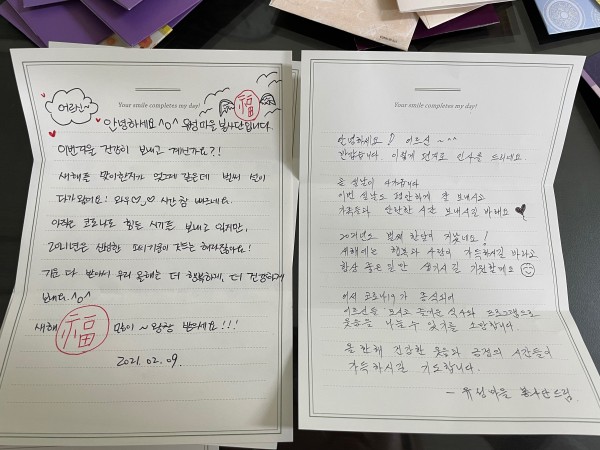 Your smile completes my day!
어르신~
福
안녕하세요 ^o^ 유성마을 봉사단입니다.
이번겨울 건강히 보내고 계신가요?!
새해를 맞이한지가 엊그제 같은데 벌써 설이
다가왔어요! 와우♡.♡ 시간 참 빠르네요.
아직은 코로나로 힘든 시기를 보내고 있지만,
2021년은 신성한 소의기운이 깃드는 해라잖아요!
기운 다 받아서 우리 올해는 더 행복하게, 더 건강하게
보내요 ^o^
새해 福 많이~ 왕창 받으세요!!!
2021. 02. 09.
Your smile completes my day!
안녕하세요! 어르신 ~^^
반갑습니다. 이렇게 편지로 인사를 드리네요
곧 설날이 다가옵니다
이번 설날도 편안하게 잘 보내시고
가족들과 안락한 시간 보내시길 바래요
2021년도 벌써 한달이 지났네요!
새해에는 행복과 사랑이 가득하시길 바라고
항상 좋은 일만 생기시길 기원할게요
어서 코로나19가 종식되어
어르신을 모시고 즐거운 식사와 프로그램으로
웃음을 나눌 수 있기를 소망합니다.
올 한해 건강한 웃음과 긍정의 시간들이
가득하시길 기도합니다.
- 유성마을 봉사단 드림.